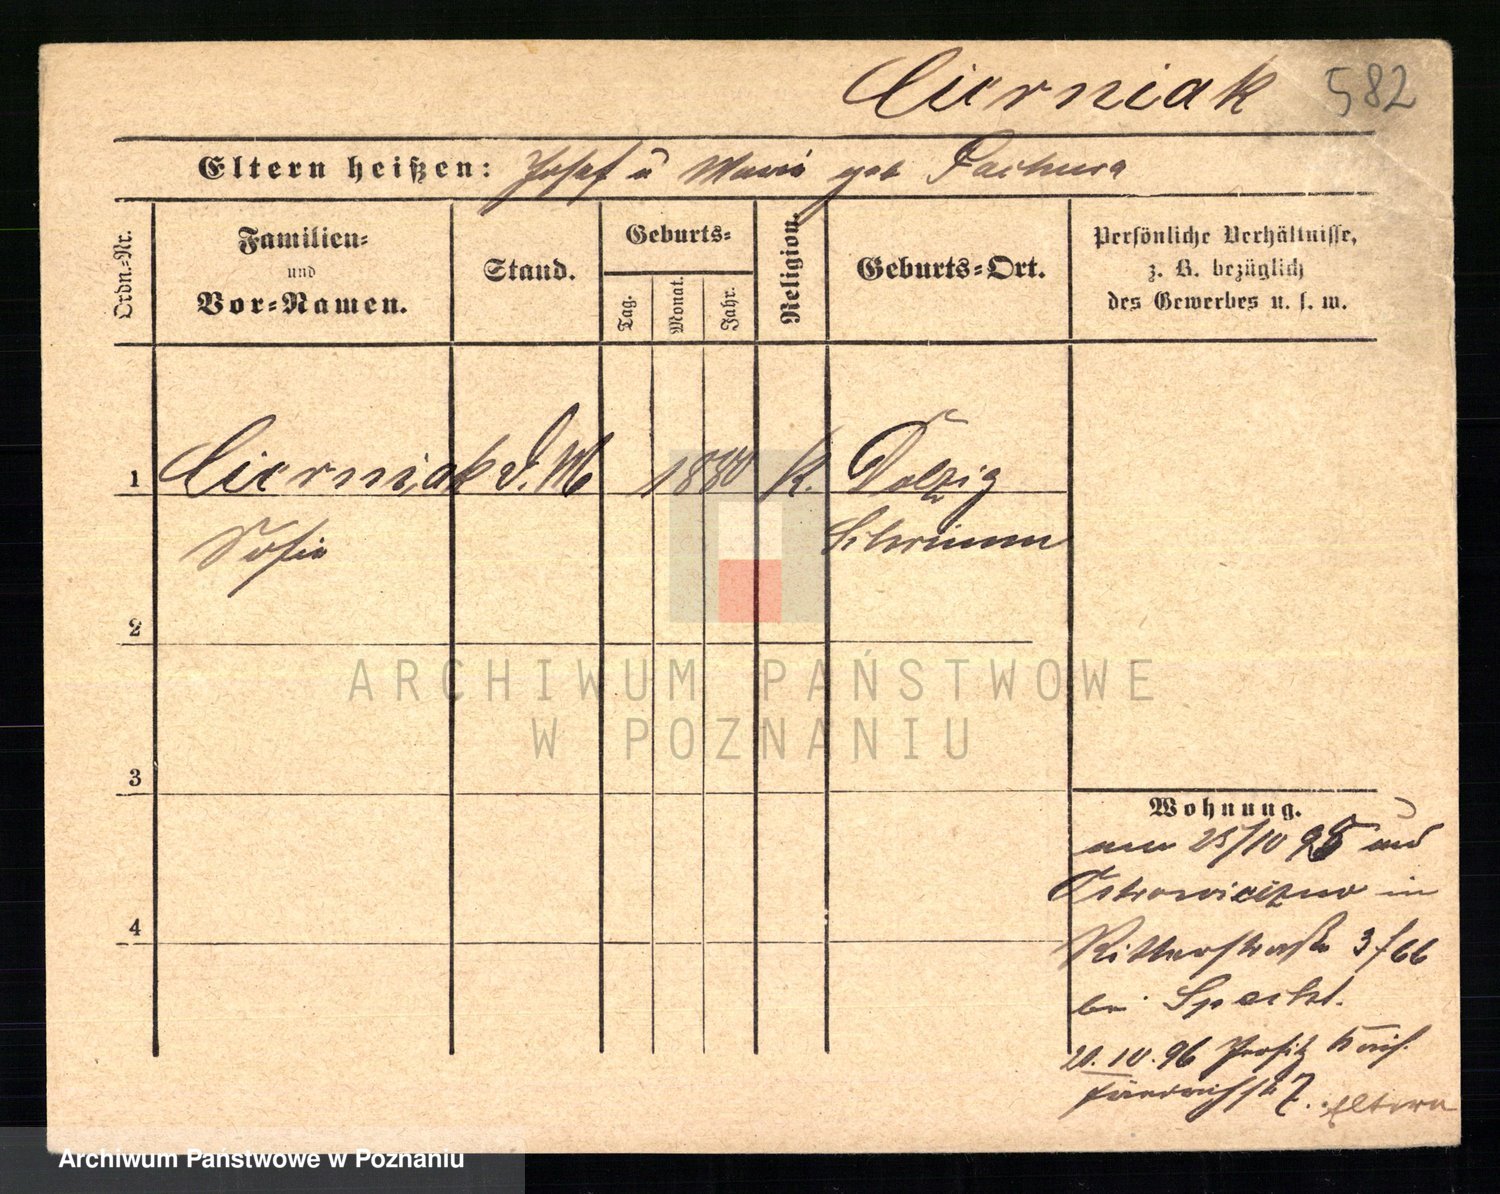 Cierniak 582
Eltern heißen: Josef u Maria geb Pachura
Ordn.-Nr.
Familien-
und
Vor-Namen.
Stand.
Geburts-
Tag.
Monat.
Jahr.
Religion.
Geburts-Ort.
Persönliche Verhältnisse,
z. B. bezüglich
des Gewerbes u. s. w.
1 Cierniak D. M 1880 K. Dolzig
Sofie Schrimm
2
3
4
Wohnung.
am 25/10 95 aus
in
Ritterstraße 3/66
bei Specht.
20.10.96
7. Eltern
ARCHIWUM PAŃSTWOWE
W POZNANIU
Archiwum Państwowe w Poznaniu